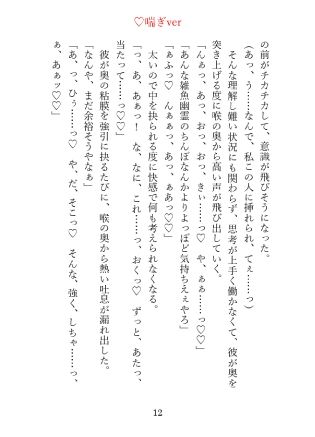 ♡喘ぎver
の前がチカチカして、意識が飛びそうになった。
(あっ、う……なんで、私この人に挿れられ、てぇ……っ)
そんな理解し難い状況にも関わらず、思考が上手く働かなくて、彼が奥を
突き上げる度に喉の奥から高い声が飛び出していく。
「んぁっ、あっ、おっ、おっ、きぃ……っ♡　や、ぁぁ……っ♡♡」
「あんな雑魚幽霊のちんぽなんかよりよっぽど気持ちえぇやろ」
「ぁふっ♡　んぁぁっ、あっ、ぁあっ♡♡」
太いので中を抉られる度に快感で何も考えられなくなる。
「っ、あ、あぁっ！　な、なに、これ……っ、おくっ♡　ずっと、あたっ、
当たって……っ♡♡」
彼が奥の粘膜を強引に抉るたびに、喉の奥から熱い吐息が漏れ出した。
「なんや、まだ余裕そうやなぁ」
「あ、っ、ひぅ……っ♡　や、だ、そこっ♡　そんな、強く、しちゃ……っ、
ぁ、あぁッ♡♡」
12